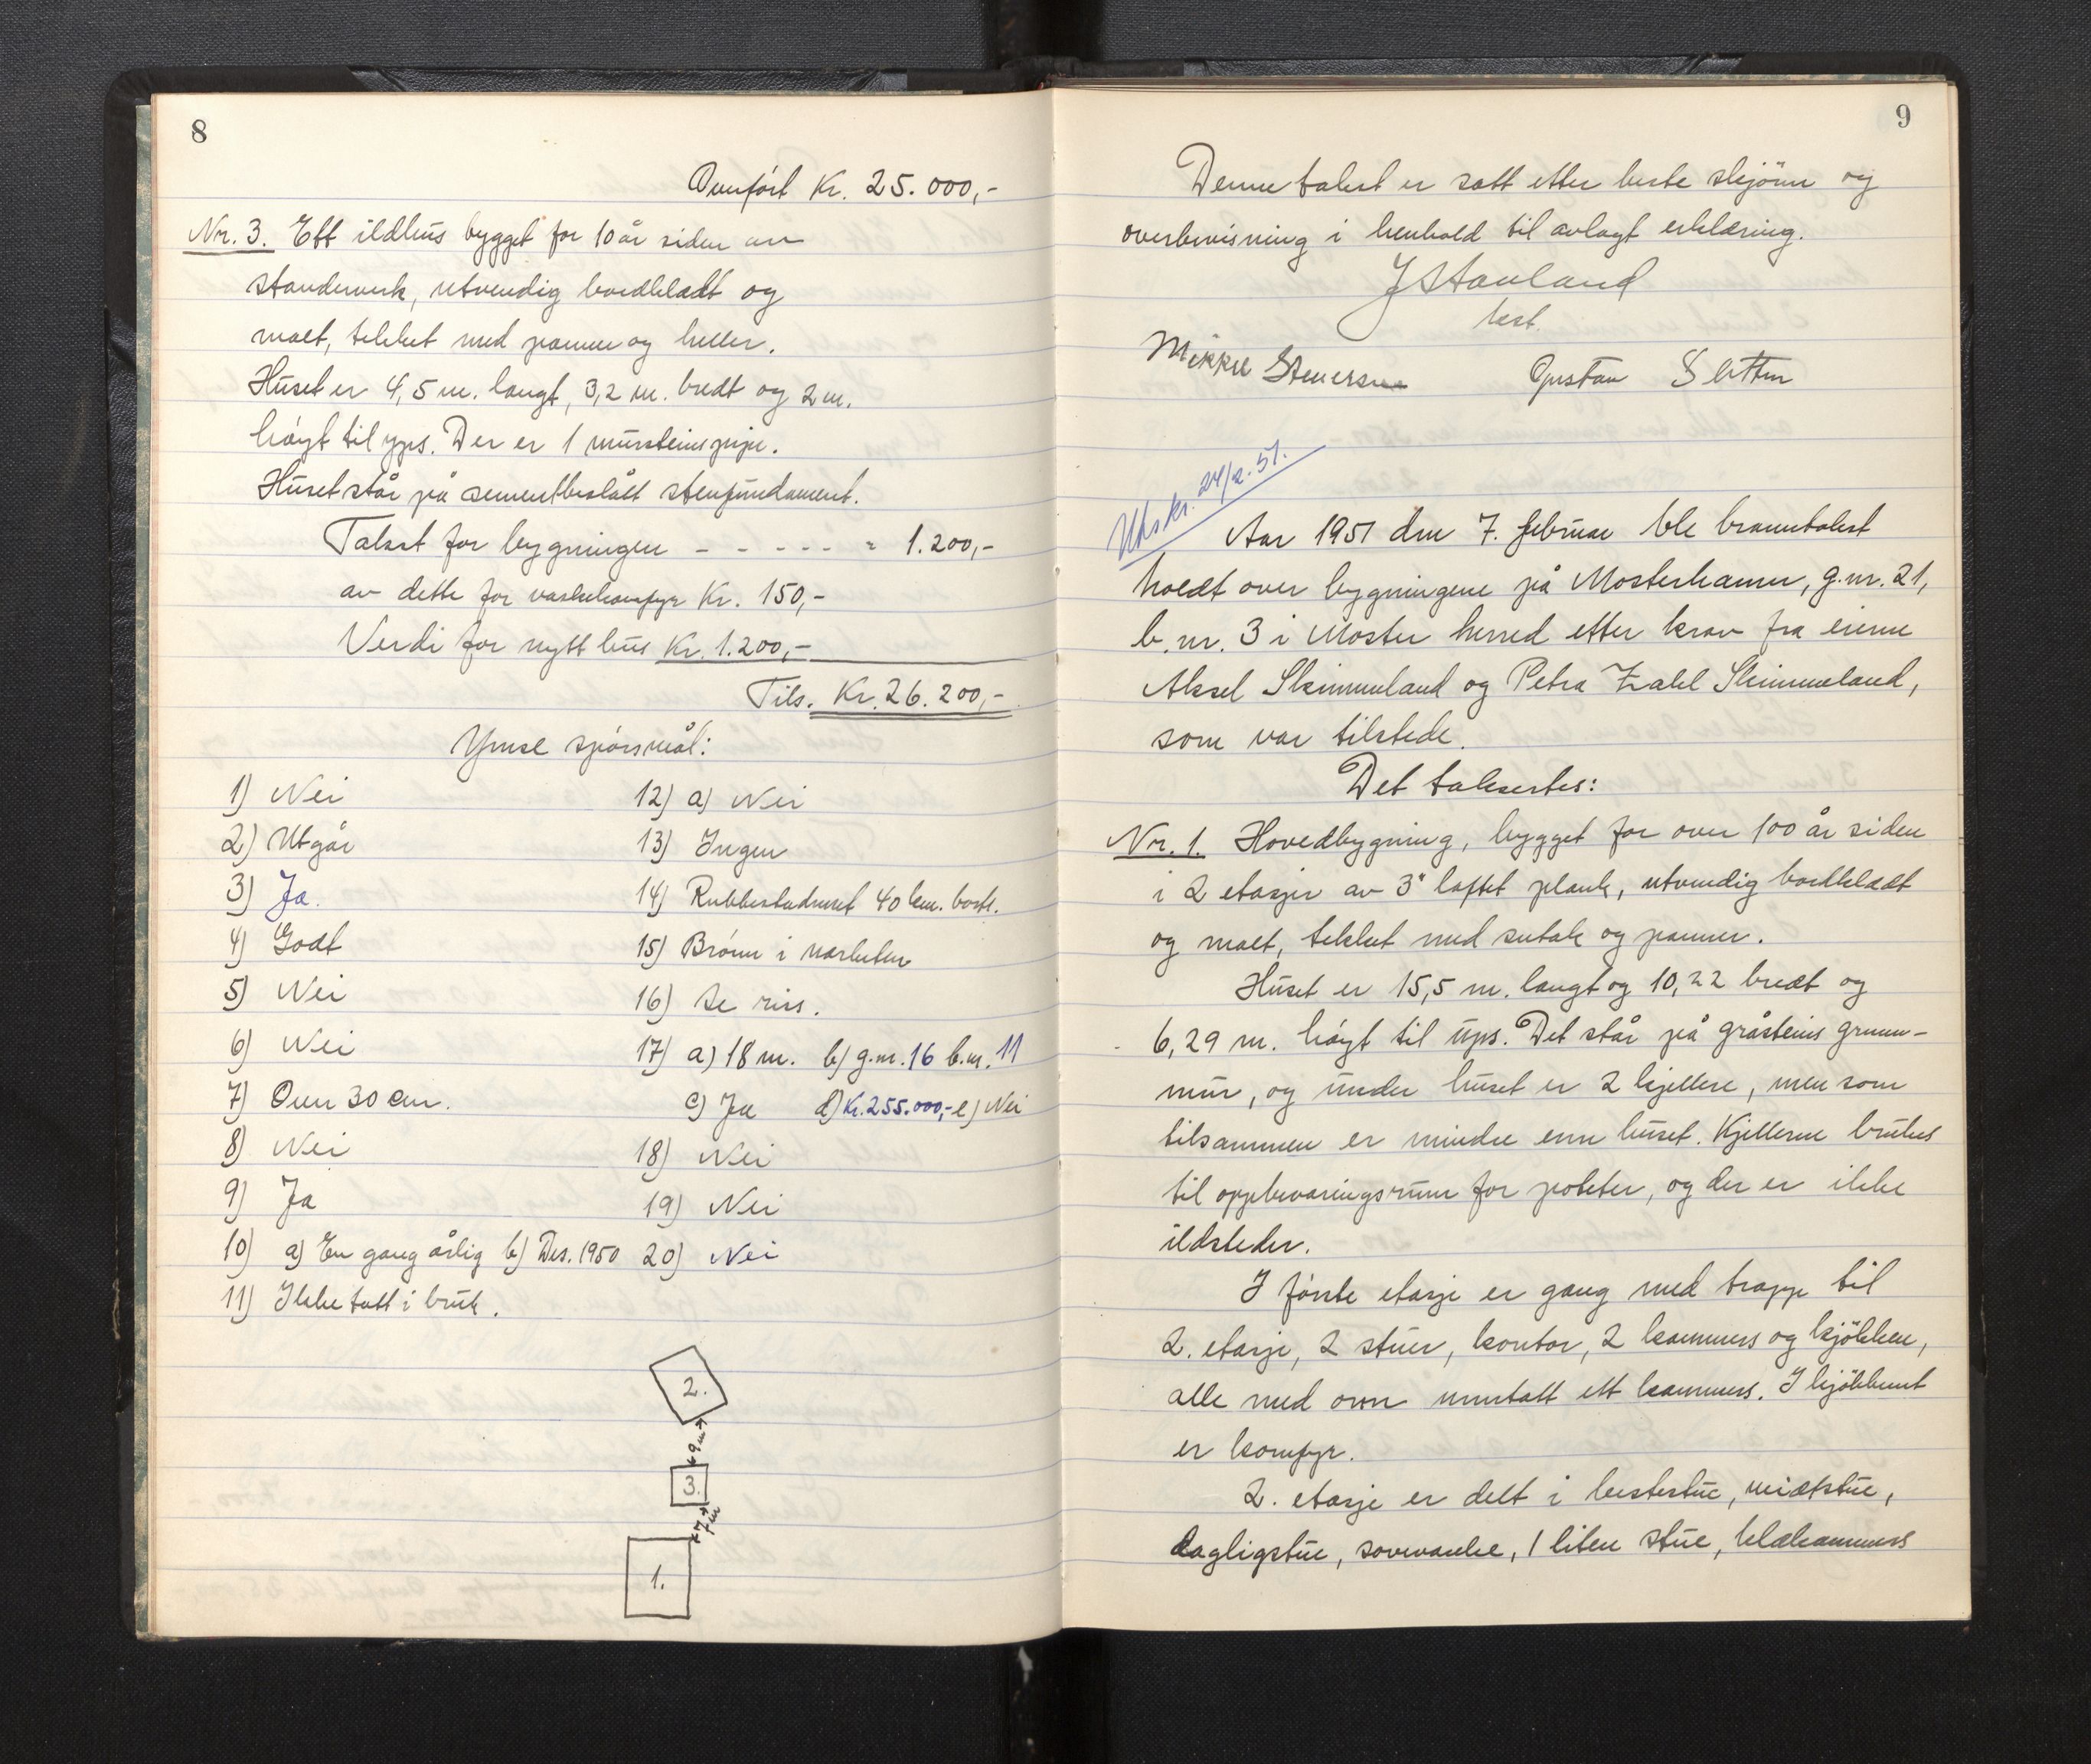 8
Overført Kr. 25.000,-
Nr. 3. Ett ildhus bygget for 10 år siden av
standerverk, utvendig bordkledt og
malt, tekket med panner og heller.
Huset er 4,5 m. langt, 3,2 m. bredt og 2 m.
høyt til ups. Der er 1 mursteinspipe.
Huset står på sementbeslått stenfundament.
Takst for bygningen - - - - - - " 1.200,-
av dette for vaskekomfyr Kr. 150,-
Verdi for nytt hus Kr. 1.200,-
Tils. Kr. 26.200,-
Ymse spørsmål:
1) Nei
2) Utgår
3) Ja.
4) Godt
5) Nei
6) Nei
7) Over 30 cm.
8) Nei
9) Ja
10) a) En gang årlig b) Des. 1950
11) Ikke tatt i bruk.
12) a) Nei
13) Ingen
14) Rubbestadneset 40 km. borte.
15) Brønn i nærheten
16) Se riss.
17) a) 18 m. b) g.nr. 16 b.nr. 11
c) Ja d) Kr. 255.000,- e) Nei
18) Nei
19) Nei
20) Nei
2.
9 m
3.
7 m
1.
9
Denne takst er satt etter beste skjönn og
overbevisning i henhold til avlagt erklæring.
J Stavland
lest.
Mikkel Gustav Sletten
Utskr. 24/2. 51.
Aar 1951 den 7. februar ble branntakst
holdt over bygningene på Mosterhamn, g.nr. 21,
b.nr. 3 i Moster herred etter krav fra eierne
Aksel Skimmeland og Petra Zahl Skimmeland,
som var tilstede.
Det takseres:
Nr. 1. Hovedbygning, bygget for over 100 år siden
i 2 etasjer av 3" laftet plank, utvendig bordkledt
og malt, tekket med sutak og panner.
Huset er 15,5 m. langt og 10,22 bredt og
6,29 m. høyt til ups. Det står på gråsteins grunn-
mur, og under huset er 2 kjellere, men som
tilsammen er mindre enn huset. Kjellerne brukes
til oppbevaringsrum for poteter, og der er ikke
ildsteder.
I første etasje er gang med trapp til
2. etasje, 2 stuer, kontor, 2 kammers og kjökken,
alle med ovn unntatt ett kammers. I kjökkenet
er komfyr.
2. etasje er delt i bestestue, midtstue,
dagligstue, soveværelse, 1 liten stue, klekammers